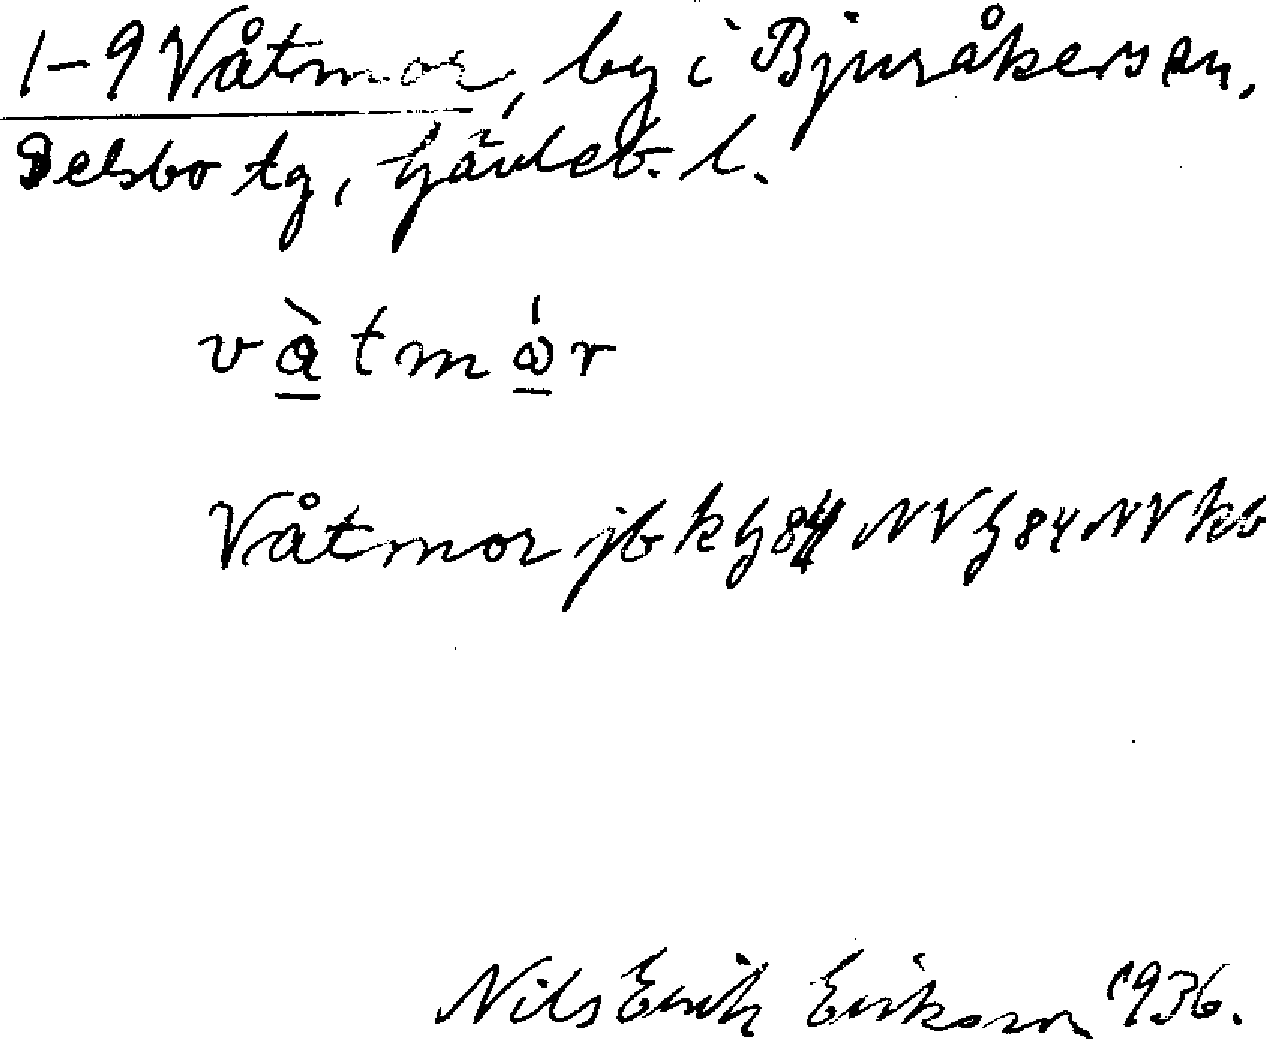 1-9 Våtmor, by i Bjuråkers sn,
Delsbo tg, Gävleb. l.
våtmor
Våtmor jb k G84 NV G84 NV kb
Nils Erik Erikson 1936.